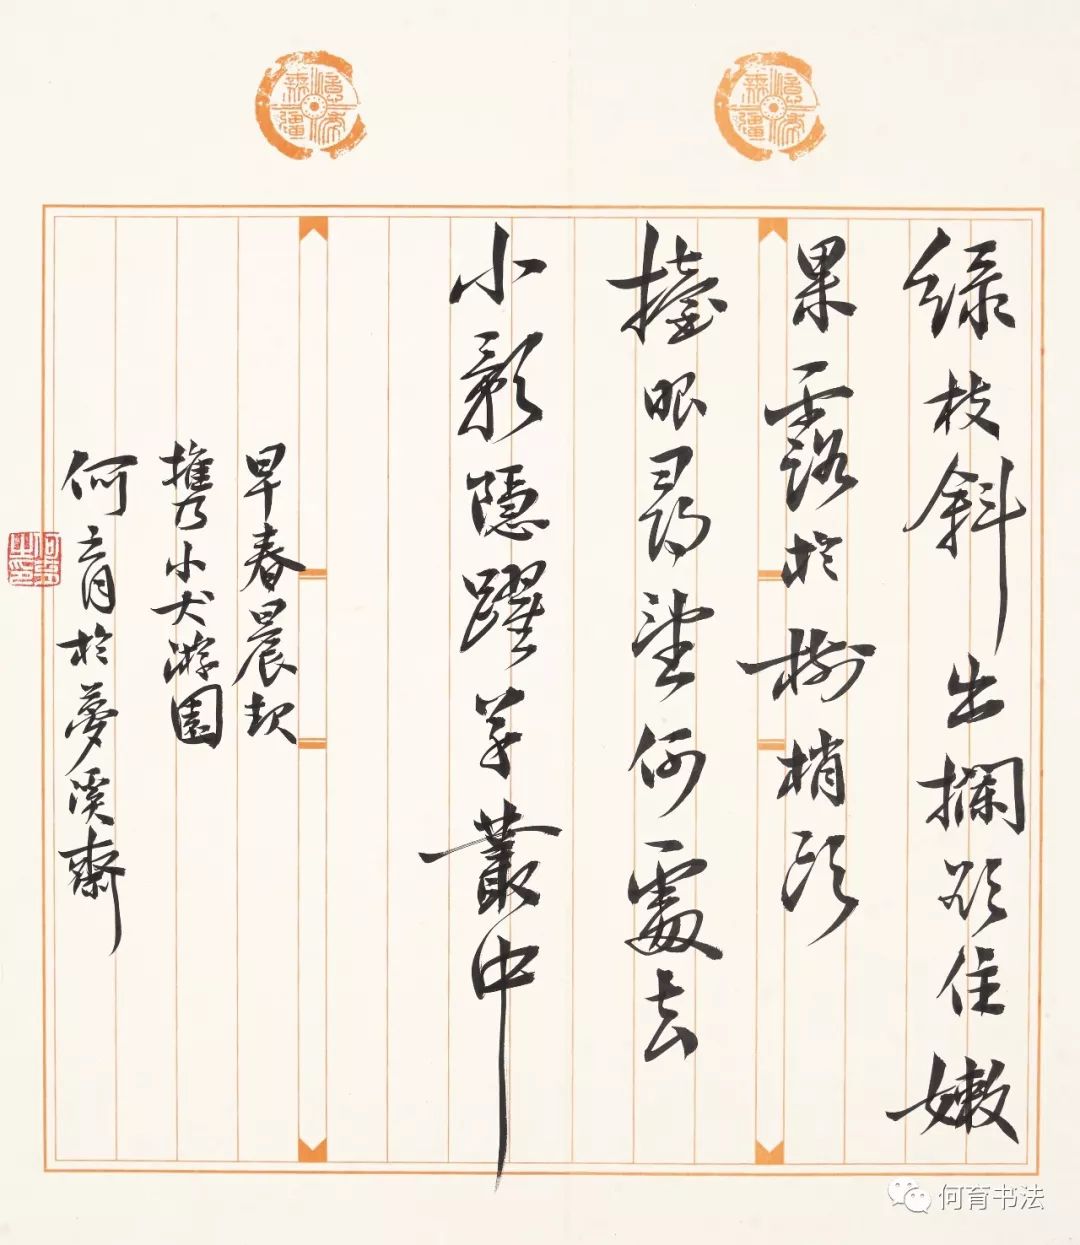 綠枝斜出攔欲住嫩
果露於樹梢頭
擡眼尋望何處去
小影隱躍草叢中
早春晨起
攜小犬游園
何育於夢溪齋
何育书法